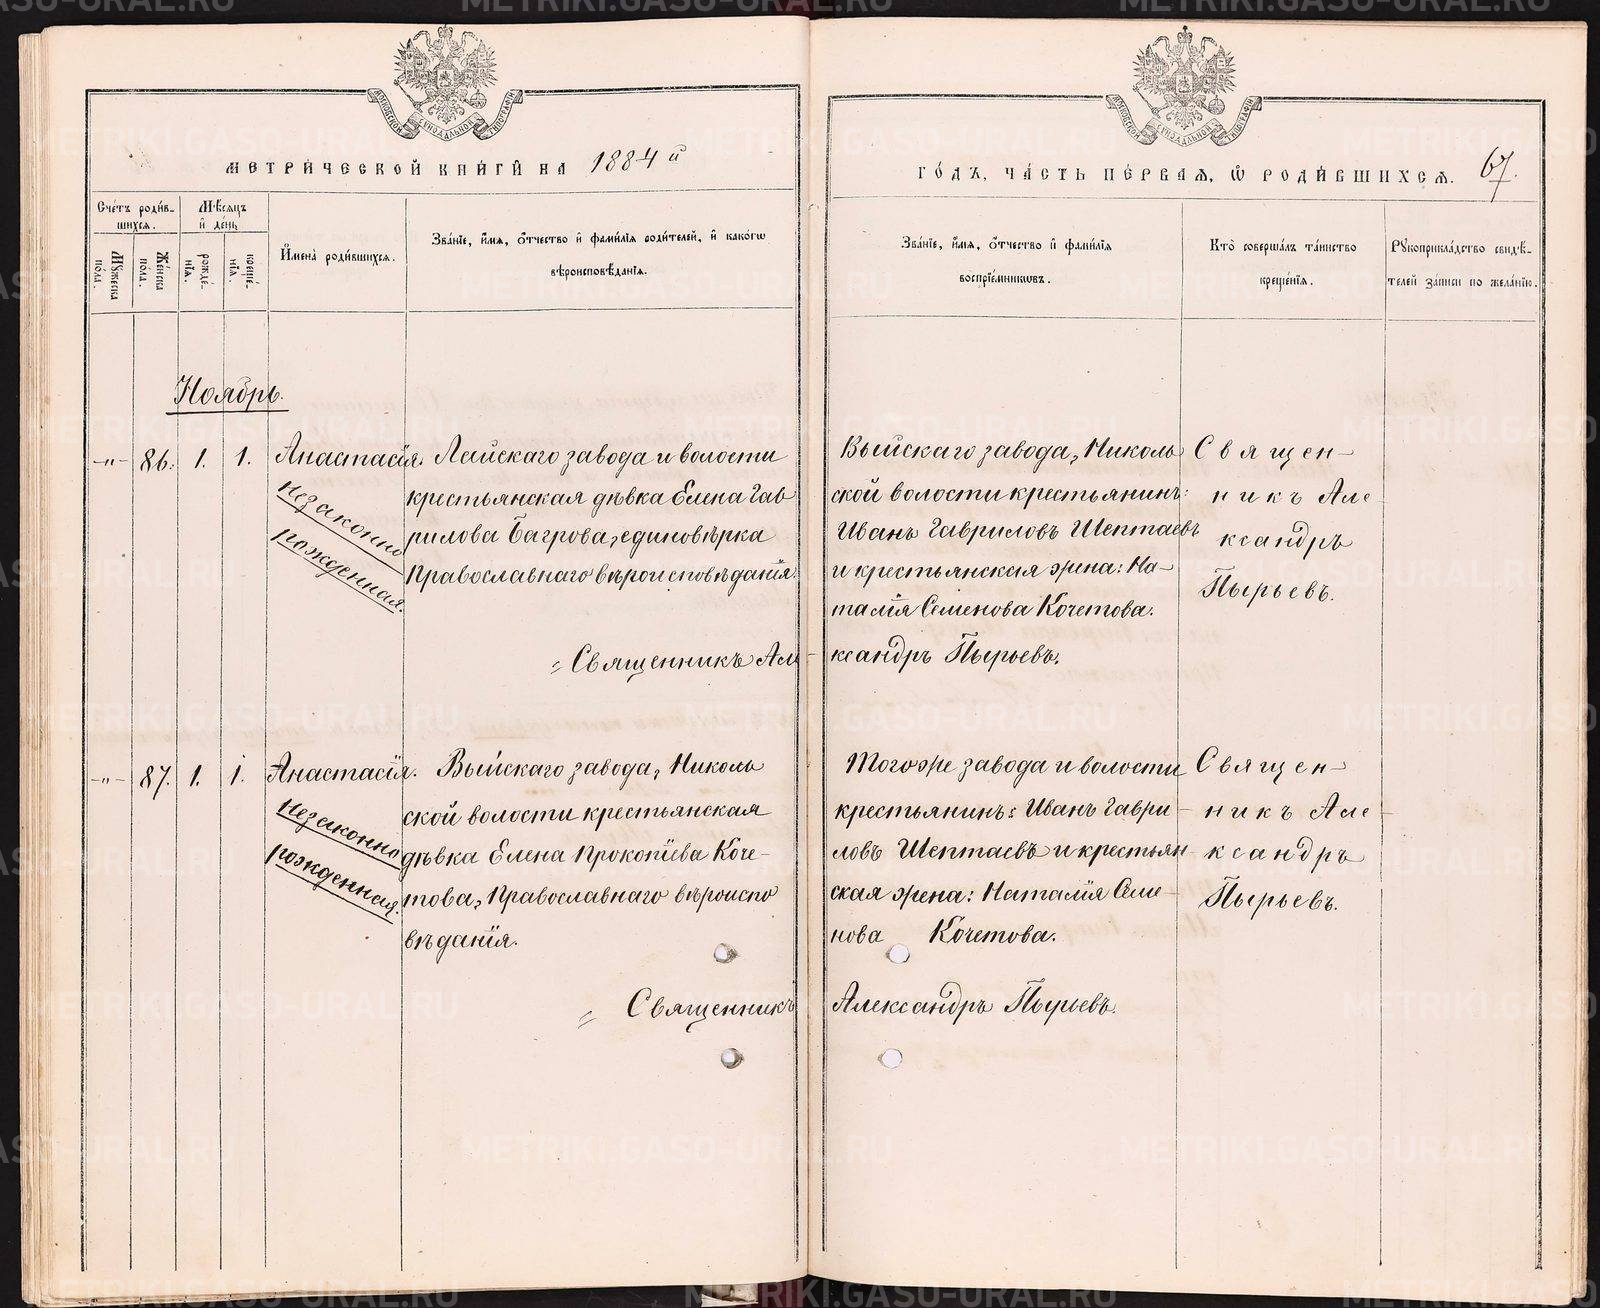 МЕТРИЧЕСКОЙ КНИГИ НА 1884 й
ГОДЪ, ЧАСТЬ ПЕРВАЯ, Ѡ РОДИВШИХСЯ. 67.
Счетъ родив-
шихся.
Мѣсяцъ
и день
Мужеска
пола.
Женска
пола.
рожде-
нія.
креще-
нія.
Имена родившихся.
Званіе, имя, отчество и фамилія родителей, и какогѡ
вѣроисповѣданія.
Званіе, имя, отчество и фамилія
воспріемниковъ.
Кто совершалъ таинство
крещенія.
Рукоприкладство свидѣ-
телей записи по желанію.
Ноябрь.
-"- 86. 1. 1. Анастасія.
Незаконно
рожденная.
Лайскаго завода и волости
крестьянская дѣвка Елена Гав
рилова Багрова, единовѣрка
Православнаго вѣроисповѣданія.
Выйскаго завода, Николь
ской волости крестьянинъ:
Иванъ Гавриловъ Шептаевъ
и крестьянская жена: На-
талія Семенова Кочетова.
Священ-
никъ Але
ксандръ
Пырьевъ.
Священникъ Але-
ксандръ Пырьевъ.
-"- 87. 1. 1. Анастасія.
Незаконно
рожденная.
Выйскаго завода, Николь
ской волости крестьянская
дѣвка Елена Прокопіева Коче-
това, Православнаго вѣроиспо
вѣданія.
Тогоже завода и волости
крестьянинъ: Иванъ Гаври-
ловъ Шептаевъ и крестьян-
ская жена: Наталія Семе-
нова Кочетова.
Священ-
никъ Але-
ксандръ
Пырьевъ.
Священникъ
Александръ Пырьевъ.
METRIKI.GASO-URAL.RU